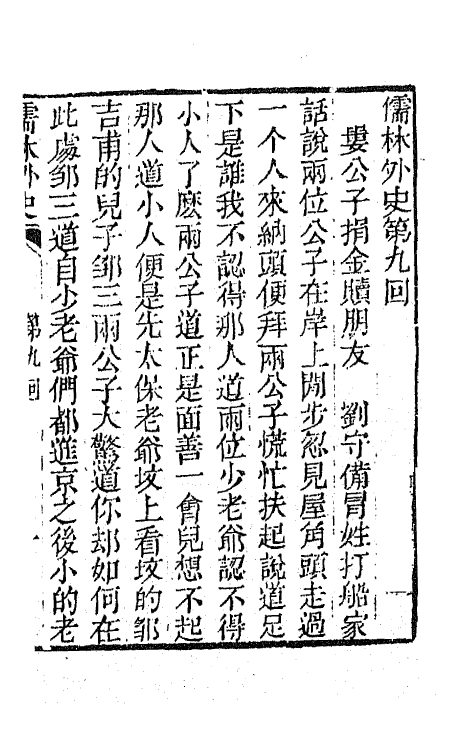 儒林外史第九回
婁公子捐金贖朋友　劉守備冒姓打船家
話說兩位公子在岸上閒步忽見屋角頭走過
一个人來納頭便拜兩公子慌忙扶起說道足
下是誰我不認得那人道兩位少老爺認不得
小人了麽兩公子道正是面善一會兒想不起
那人道小人便是先太保老爺坟上看坟的邹
吉甫的兒子邹三兩公子大驚道你却如何在
此處邹三道自少老爺們都進京之後小的老
儒林外史
第九回
一